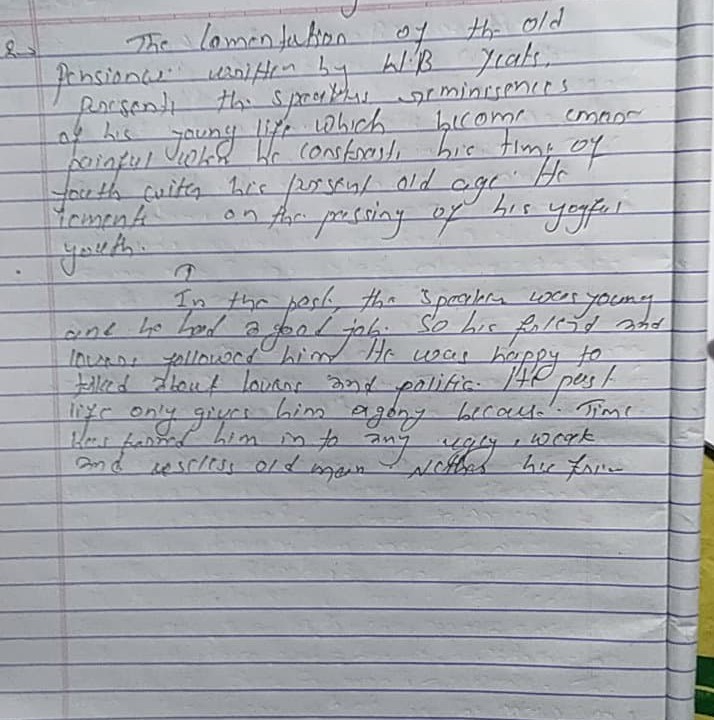 The Lamentation of the old
Pensioner written by W.B Yeats.
Present, the speakers reminiscences
of his young life which become more
painful when he constrast, his time of
youth with his present old age. He
lement on the pressing of his
youth.
In the past, the speaker was young
and he had a good job. So his friend and
lovers followed him He was happy to
talked about lovers and politic. past
life only gives him agony because. Time
Has him in to any ugly, weak
and old man his